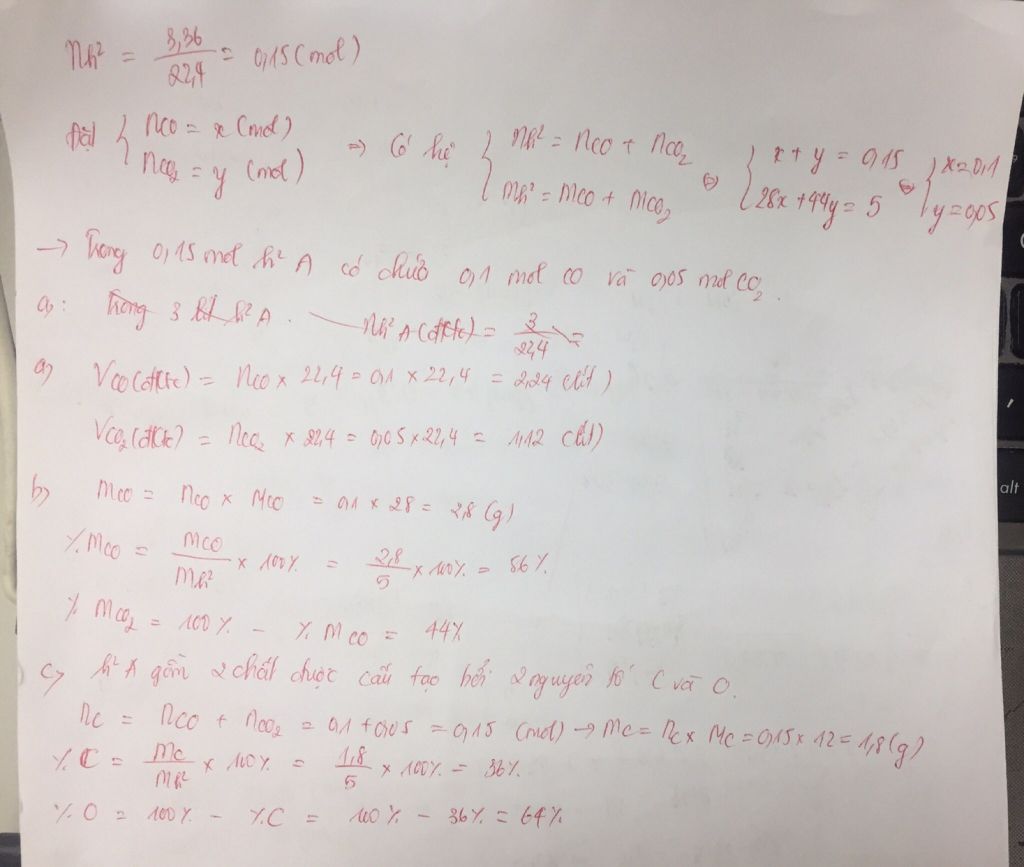 nh² = 3,36/22,4 = 0,15 (mol)
Đặt { nCO = x (mol) nCO₂ = y (mol) => Có hệ { nh² = nCO + nCO₂ mh² = mCO + mCO₂ ⇔ { x + y = 0,15 28x + 44y = 5 ⇔ { x = 0,1 y = 0,05
→ Trong 0,15 mol h² A có chứa 0,1 mol CO và 0,05 mol CO₂.
a): Trong 3 lít h² A. nh² A (đktc) = 3/22,4 =
a) VCO(đktc) = nCO × 22,4 = 0,1 × 22,4 = 2,24 (lít)
VCO₂(đktc) = nCO₂ × 22,4 = 0,05 × 22,4 = 1,12 (lít)
b) mCO = nCO × MCO = 0,1 × 28 = 2,8 (g)
% mCO = mCO/mh² × 100% = 2,8/5 × 100% = 56%
% mCO₂ = 100% - % mCO = 44%
c) h² A gồm 2 chất được cấu tạo bởi 2 nguyên tố C và O.
nC = nCO + nCO₂ = 0,1 + 0,05 = 0,15 (mol) → mC = nC × MC = 0,15 × 12 = 1,8 (g)
% C = mC/mh² × 100% = 1,8/5 × 100% = 36%
% O = 100% - % C = 100% - 36% = 64%
alt